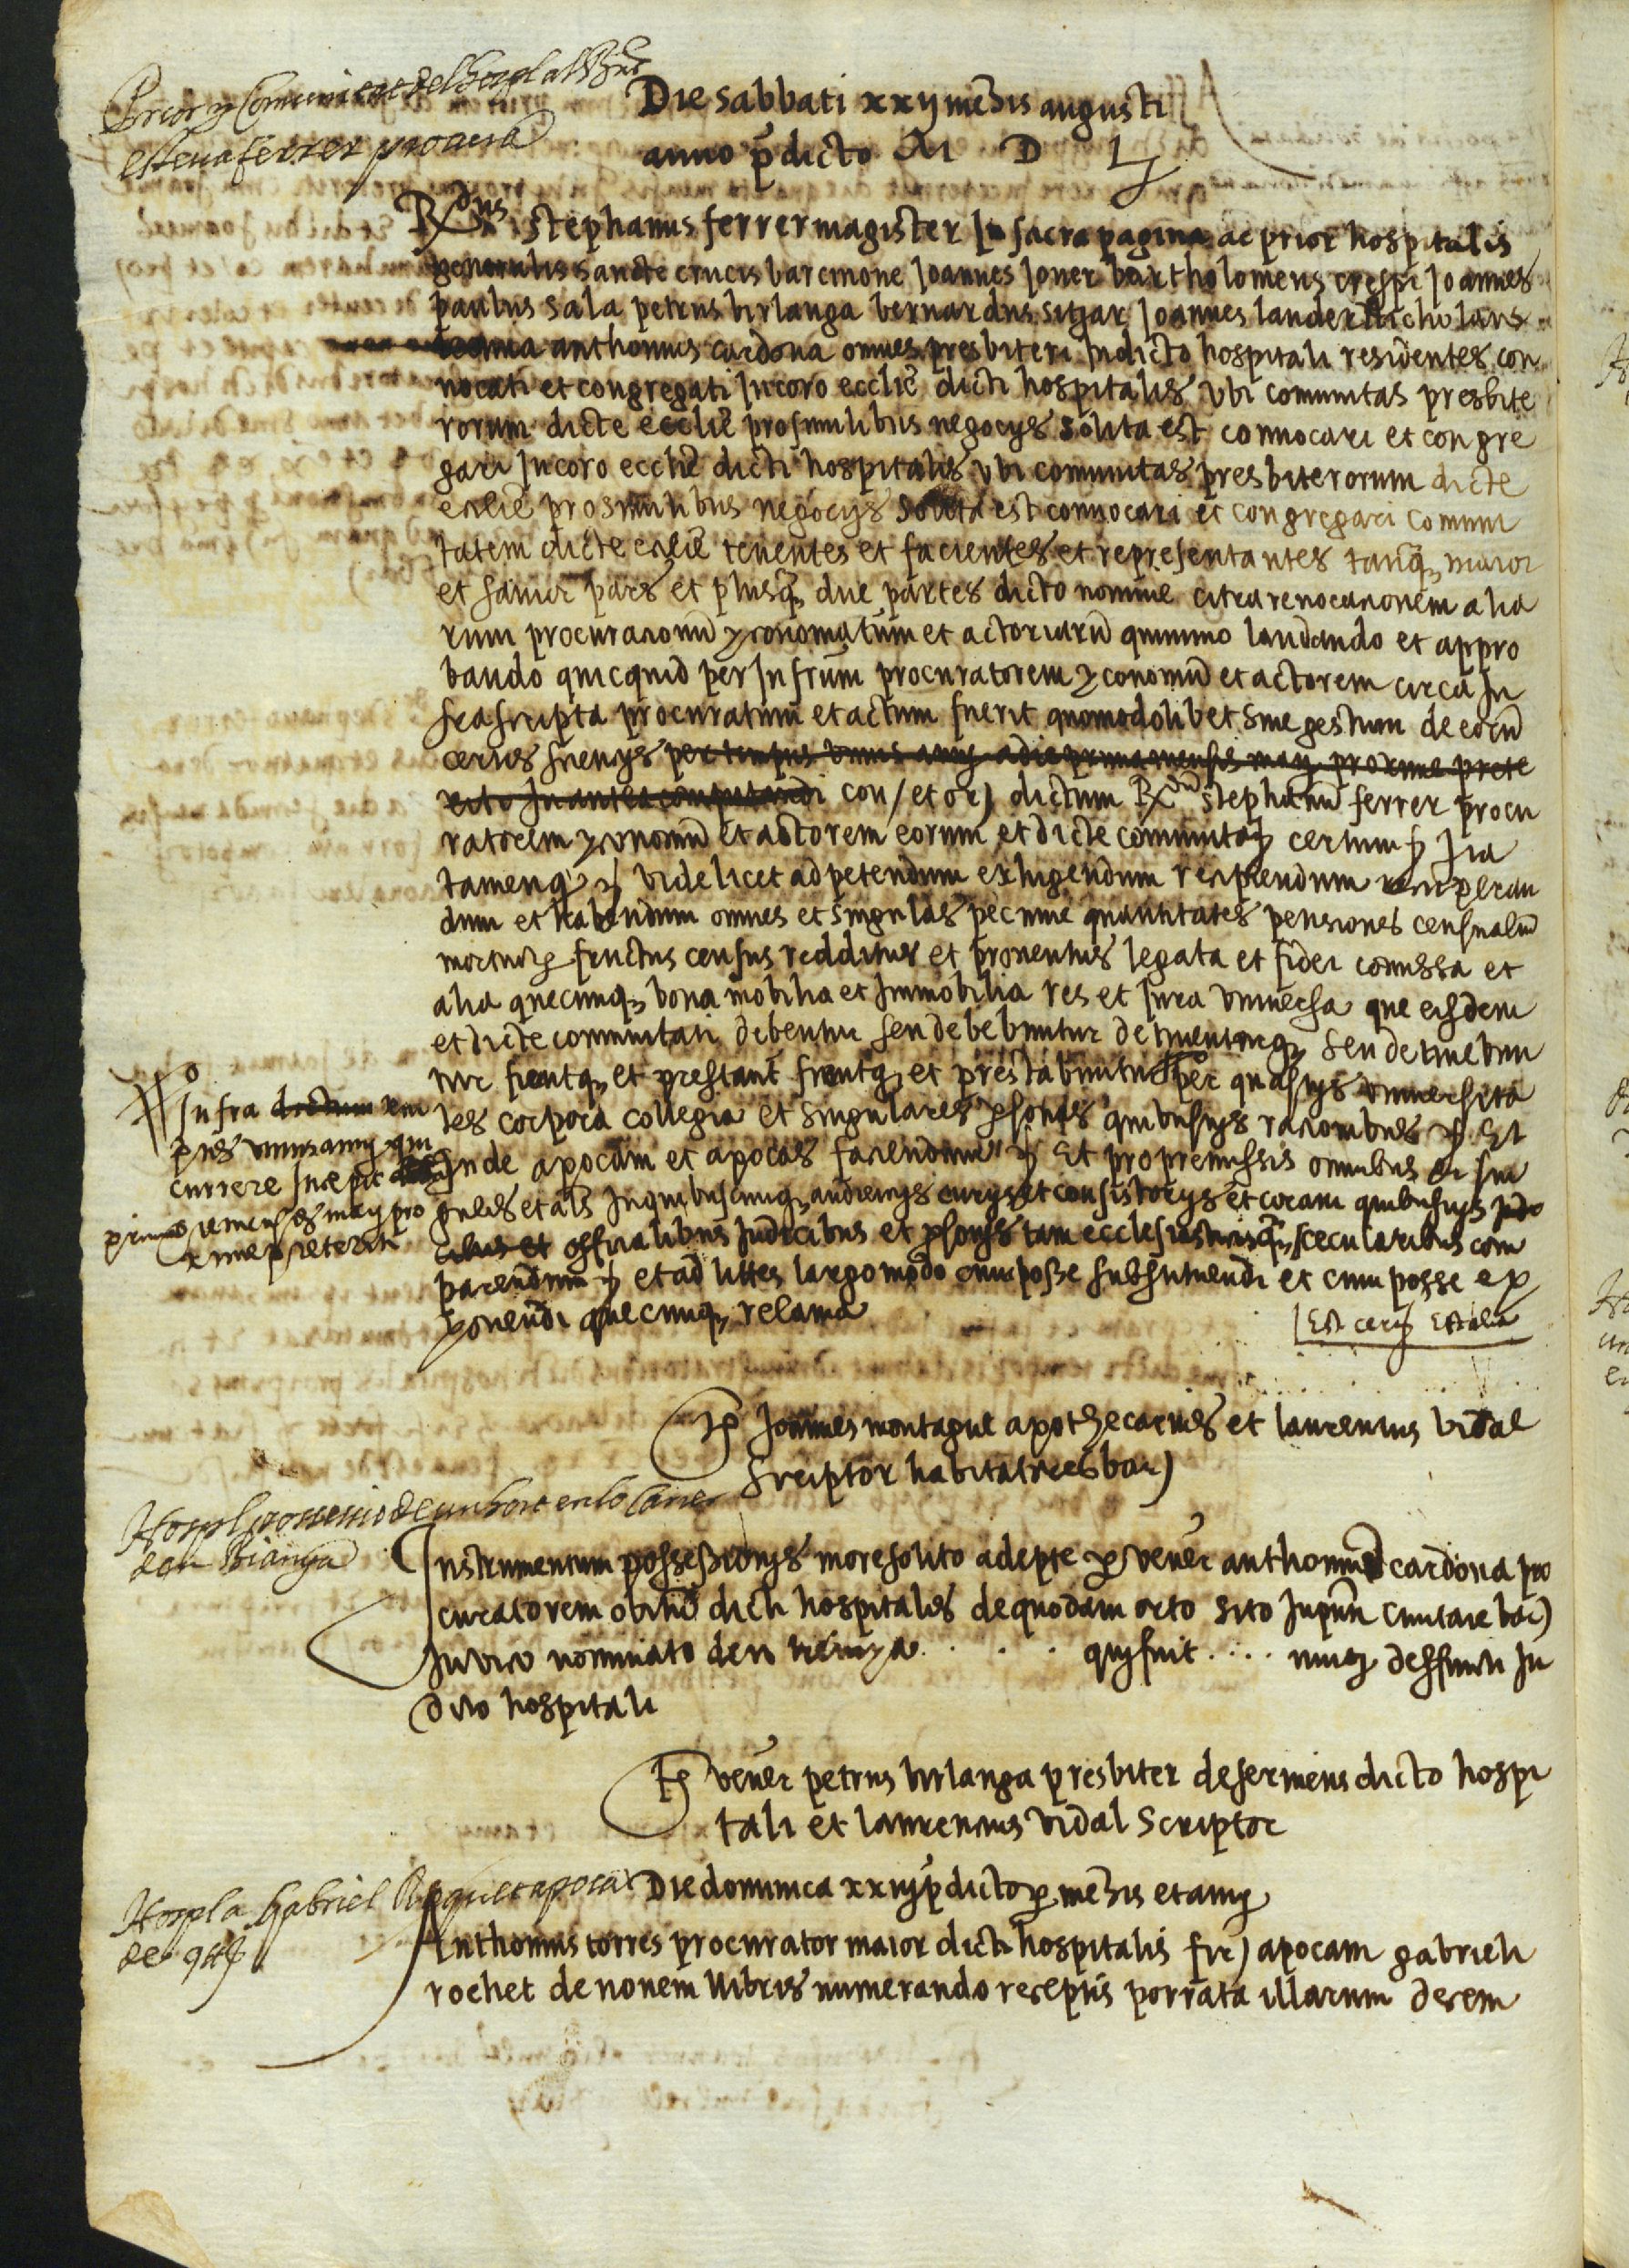 Prior y Comunitat del hospl al Rnt
esteva ferrer procura
Die sabbati xxiij mensis augusti
anno pdicto M D L
Rdus stephanus ferrer magister In sacra pagina ac prior hospitalis
generalis sancte crucis barcinone Joannes Joner bartholomeus crespi Joannes
paulus sala petrus birlanga bernardus sitjar Joannes lauder Nicholaus
anthonius cardona omnes presbiteri In dicto hospitali residentes con
uocati et congregati In coro ecclie dicti hospitalis vbi comunitas presbite
rorum dicte ecclie pro similibus negocijs solita est conuocari et congre
gari In coro ecclie dicti hospitalis vbi comunitas presbiterorum dicte
ecclie pro similibus negocijs solita est conuocari et congregari comuni
tatem dicte ecclie tenentes et facientes et representantes tanq maior
et sanior pars et plusq due partes dicto nomine citra reuocacionem alia
rum procuracionu yconomatum et actoriaru quinimo laudando et appro
bando quicquid per Infrum procuratorem yconomu et actorem circa In
frascripta procuratum et actum fuerit quomodolibet siue gestum de eoru
certis sciencijs per tempus vnius anny a die prima mensis maij proxime prete
riti In antea computandi con / et or) dictum Rdu stephanu ferrer procu
ratorem yconomu et actorem eorum et dicte comunitatis certum Ita
tamen q videlicet ad petendum exhigendum recipiendum recuperan
dum et habendum omnes et singulas peccunie quantitates pensiones censualiu
mortuor fructus census redditus et prouentus legata et fidei comissa et
alia quecunq bona mobilia et Immobilia res et Jura vniuersa que eisdem
et dicte comunitati debentur seu debebuntur detinenturq seu detinebun
tur fientq et prestant fientq et prestabuntur per quasuis vniuersita
tes corpora collegia et singulares psones quibusuis racionibus Et
Inde apocam et apocas faciendum Et pro premissis omnibus et sin
gulis et als In quibuscunq audiencijs curijs et consistorijs et coram quibusuis Judi
cibus et officialibus Judicibus et psonis tam ecclesiasticis q secularibus com
parendum et ad littes largo modo cum posse substituendi et cum posse ex
ponendi quecunq reclama
Est cery Et alia
Infra dictum tem
pus vnius anny qui
currere Incepit
primo mensis maij pro
xime preteriti
Ts Joannes montagut apothecarius et laurencius vidal
scriptor habitatores bar)
Hospl possessio de un hort en lo Carrer
den Bianya
Instrumentum possessionis more solito adepte p vener anthoniu cardona pro
curatorem obitus dicti hospitalis de quodam orto sito In pnti ciuitate bar)
In vico nominato den bianya . . . . qui fuit . . . . nuncq deffuncti In
dicto hospitali
Ts vener petrus birlanga presbiter deseruiens dicto hospi
tali et laurencius vidal scriptor
Hospl a gabriel Roquet apoca
de 9 ll
Die dominica xxiiij pdictor mensis et anny
Anthonius torres procurator maior dicti hospitalis fir) apocam gabrieli
rochet de nouem llibris numerando receptis porrata illarum decem